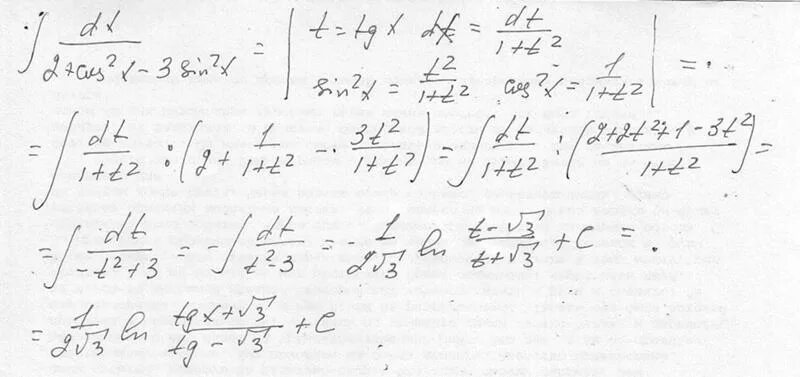 ∫ dx / (2+cos²x−3sin²x) = | t=tgx dx = dt/(1+t²) sin²x = t²/(1+t²) cos²x = 1/(1+t²) | =
= ∫ dt/(1+t²) : (2 + 1/(1+t²) − 3t²/(1+t²)) = ∫ dt/(1+t²) : ((2+2t²+1−3t²)/(1+t²)) =
= ∫ dt/(−t²+3) = −∫ dt/(t²−3) = 1/(2√3) ln (t−√3)/(t+√3) + C =
= 1/(2√3) ln (tgx+√3)/(tg−√3) + C